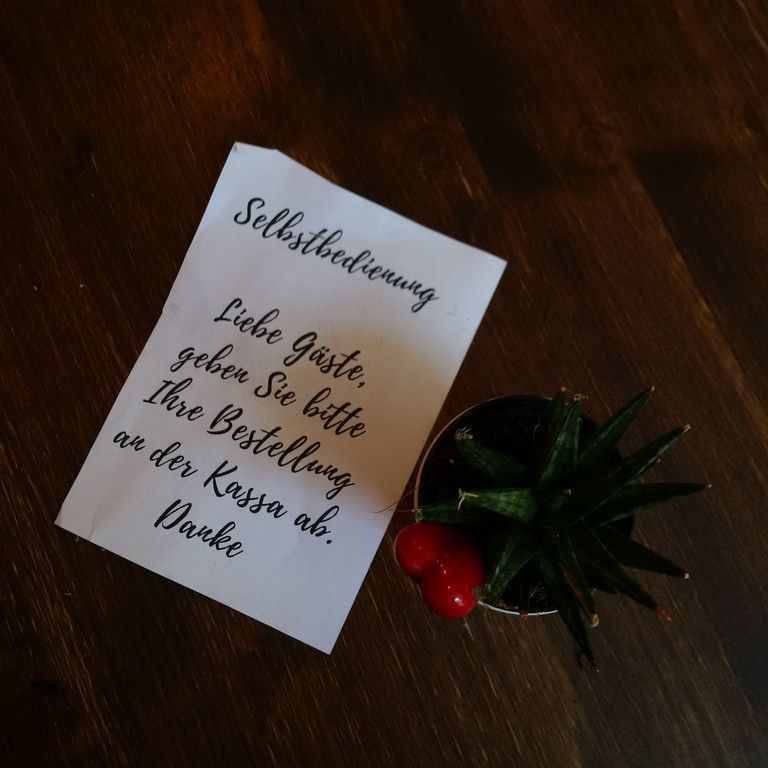 Selbstbedienung
Liebe Gäste,
geben Sie bitte
Ihre Bestellung
an der Kassa ab.
Danke